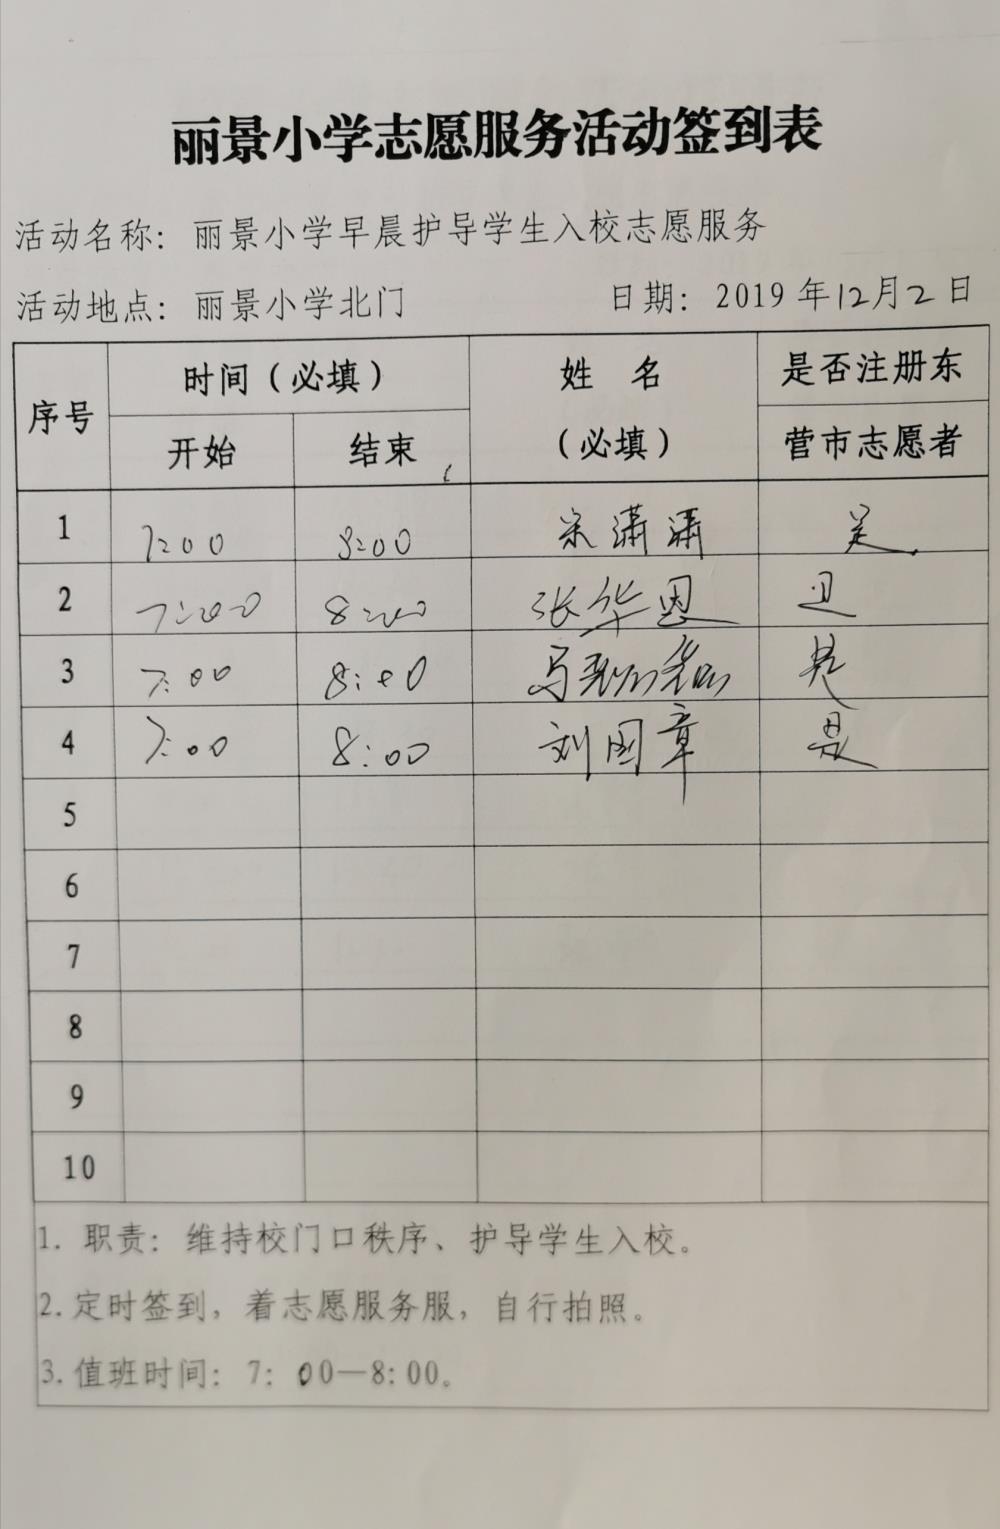 丽景小学志愿服务活动签到表
活动名称：丽景小学早晨护导学生入校志愿服务
活动地点：丽景小学北门 日期：2019年12月2日
序号 时间（必填） 姓名（必填） 是否注册东营市志愿者
开始 结束
1 7:00 8:00 宋潇潇 是
2 7:00 8:00 张华恩 是
3 7:00 8:00 马 是
4 7:00 8:00 刘国章 是
5
6
7
8
9
10
1. 职责：维持校门口秩序、护导学生入校。
2. 定时签到，着志愿服务服，自行拍照。
3. 值班时间：7：00—8：00。